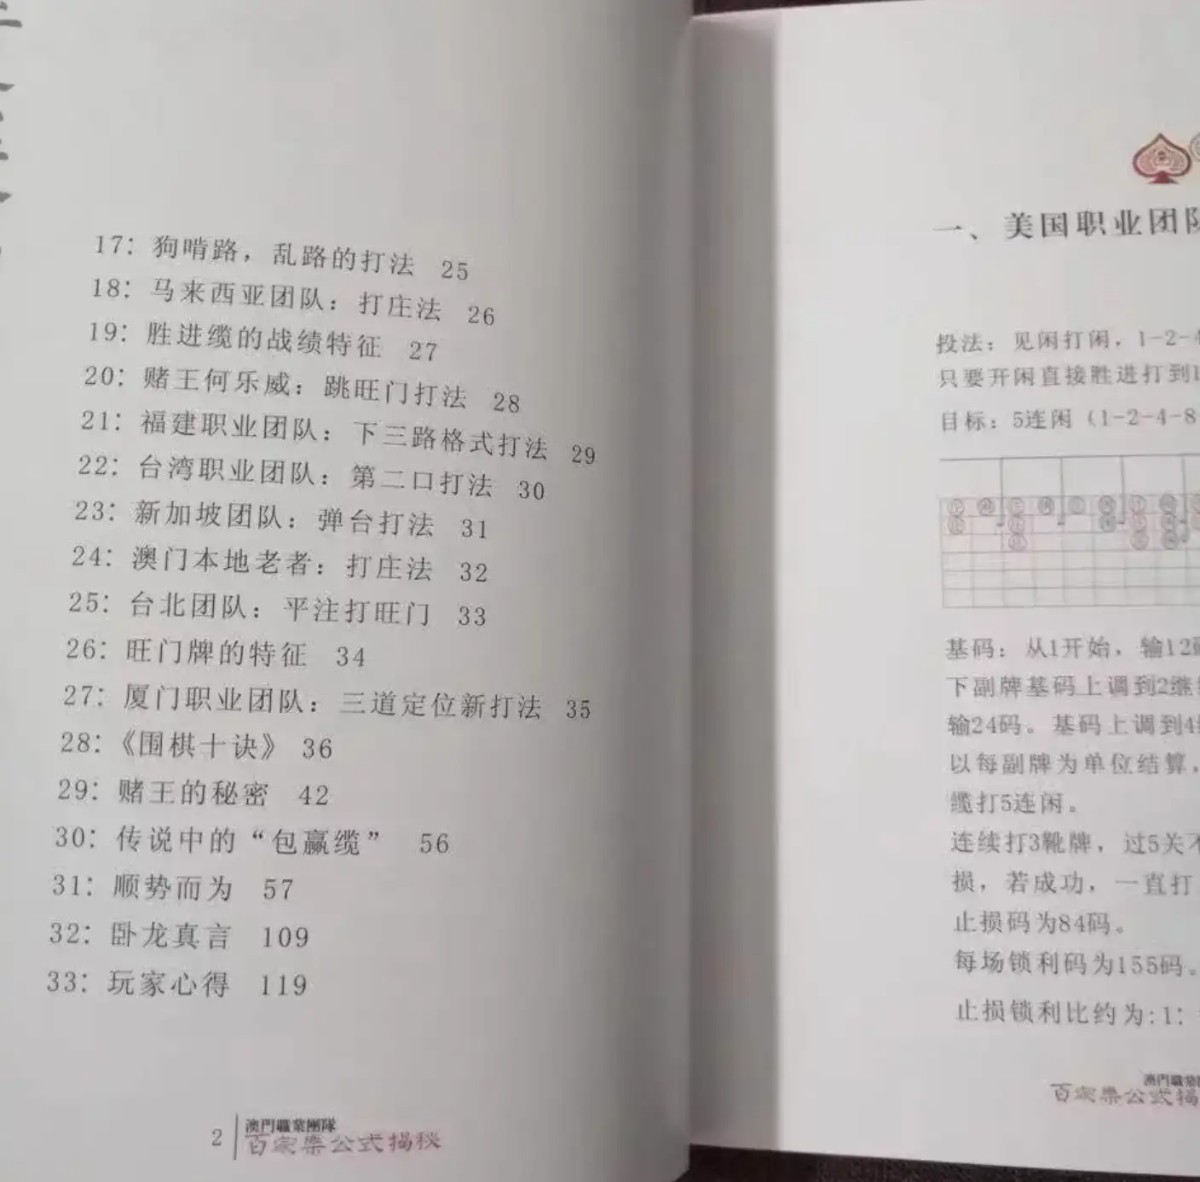 17：狗啃路，乱路的打法 25
18：马来西亚团队：打庄法 26
19：胜进缆的战绩特征 27
20：赌王何乐威：跳旺门打法 28
21：福建职业团队：下三路格式打法 29
22：台湾职业团队：第二口打法 30
23：新加坡团队：弹台打法 31
24：澳门本地老者：打庄法 32
25：台北团队：平注打旺门 33
26：旺门牌的特征 34
27：厦门职业团队：三道定位新打法 35
28：《围棋十诀》 36
29：赌王的秘密 42
30：传说中的“包赢缆” 56
31：顺势而为 57
32：卧龙真言 109
33：玩家心得 119
2
澳門職業團隊
百家樂公式揭秘
一、美国职业团队
投法：见闲打闲，1-2-4
只要开闲直接胜进打到
目标：5连闲（1-2-4-8
基码：从1开始，输12码
下副牌基码上调到2继
输24码。基码上调到4
以每副牌为单位结算，
缆打5连闲。
连续打3靴牌，过5关不
损，若成功，一直打
止损码为84码。
每场锁利码为155码。
止损锁利比约为:1：
澳門職業
百家樂公式揭